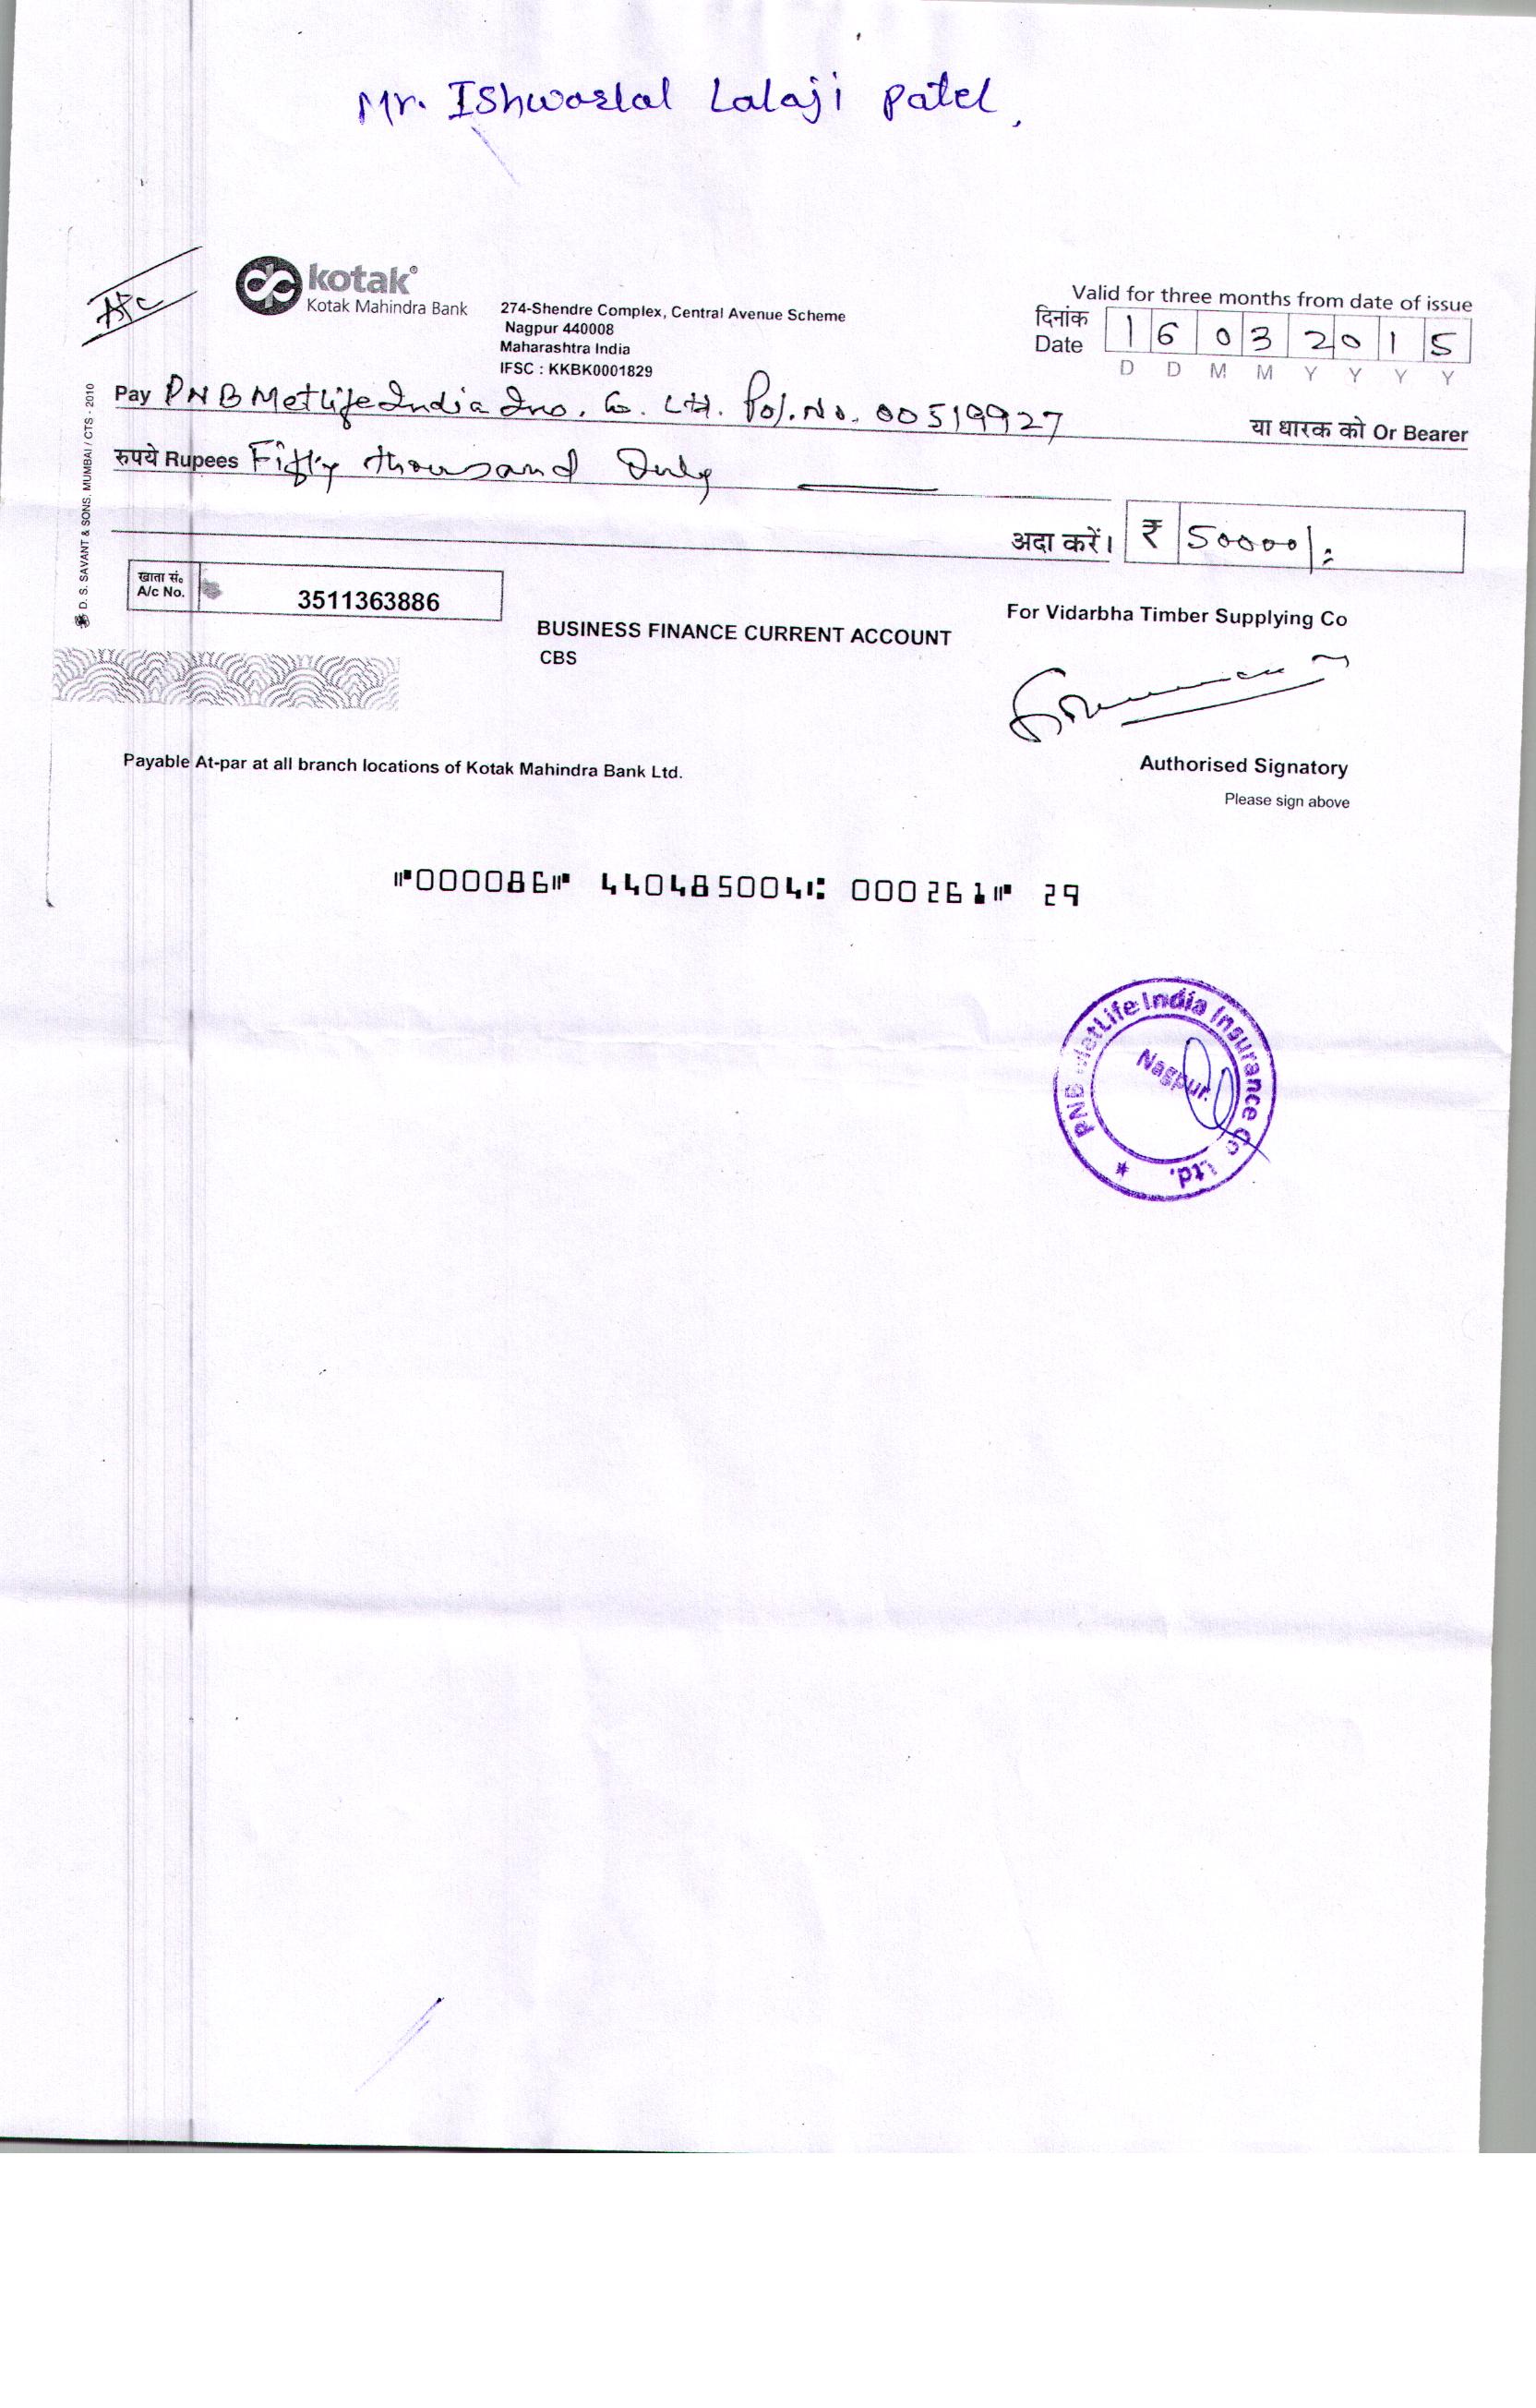 Mr. Ishwarlal Lalaji Patel,
A/c
kotak®
Kotak Mahindra Bank
274-Shendre Complex, Central Avenue Scheme
Nagpur 440008
Maharashtra India
IFSC : KKBK0001829
Valid for three months from date of issue
दिनांक
Date 1 6 0 3 2 0 1 5
D D M M Y Y Y Y
Pay PNB MetLife India Ins. Co. Ltd. Pol. No. 00519927 या धारक को Or Bearer
रुपये Rupees Fifty thousand Only
अदा करें। ₹ 50000/=
D. S. SAVANT & SONS, MUMBAI / CTS - 2010
खाता सं॰
A/c No. 3511363886
BUSINESS FINANCE CURRENT ACCOUNT
CBS
For Vidarbha Timber Supplying Co
Payable At-par at all branch locations of Kotak Mahindra Bank Ltd.
Authorised Signatory
Please sign above
⑈000086⑈ 440485004⑆ 000261⑈ 29
PNB MetLife India Insurance Co Ltd.
Nagpur.